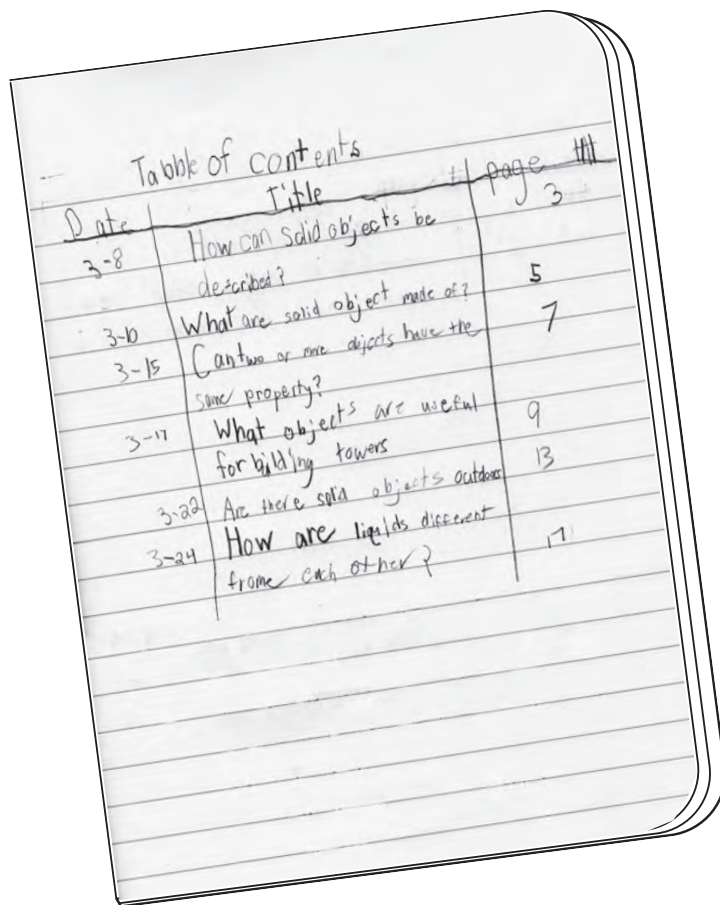 Tabble of contents
Date Title page #
3-8 How can solid objects be 3
described?
3-10 What are solid object made of? 5
3-15 Can two or more objects have the 7
same property?
3-17 What objects are useful 9
for bilding towers
3-22 Are there solid objects outdoors 13
3-24 How are liquids different 17
frome each other?